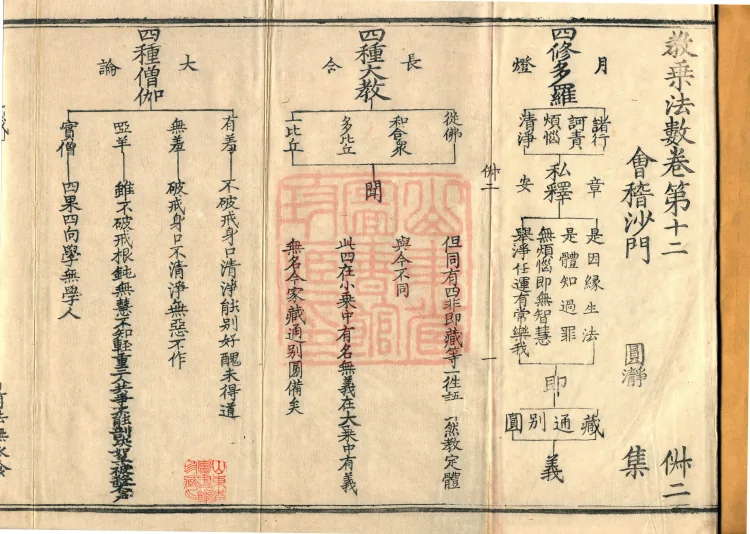 教乗法數卷第十二
會稽沙門
圓瀞
集
四修多羅
月
燈
諸行
訶責
煩惱
清淨
私釋
章
安
是因緣生法
是體知過罪
無煩惱即無智慧
舉淨任運有常樂我
即
藏
通
別
圓
義
四種大教
長
含
從佛
和合衆
多比丘
一比丘
聞
但同有四非即藏等一徃
然教定體
與今不同
此四在小乘中有名無義在大乘中有義
無名今家藏通別圓備矣
四種僧伽
大
論
有羞
不破戒身口清淨能別好醜未得道
無羞
破戒身口不清淨無惡不作
瘂羊
雖不破戒根鈍無慧不知輕重
實僧
四果四向學無學人